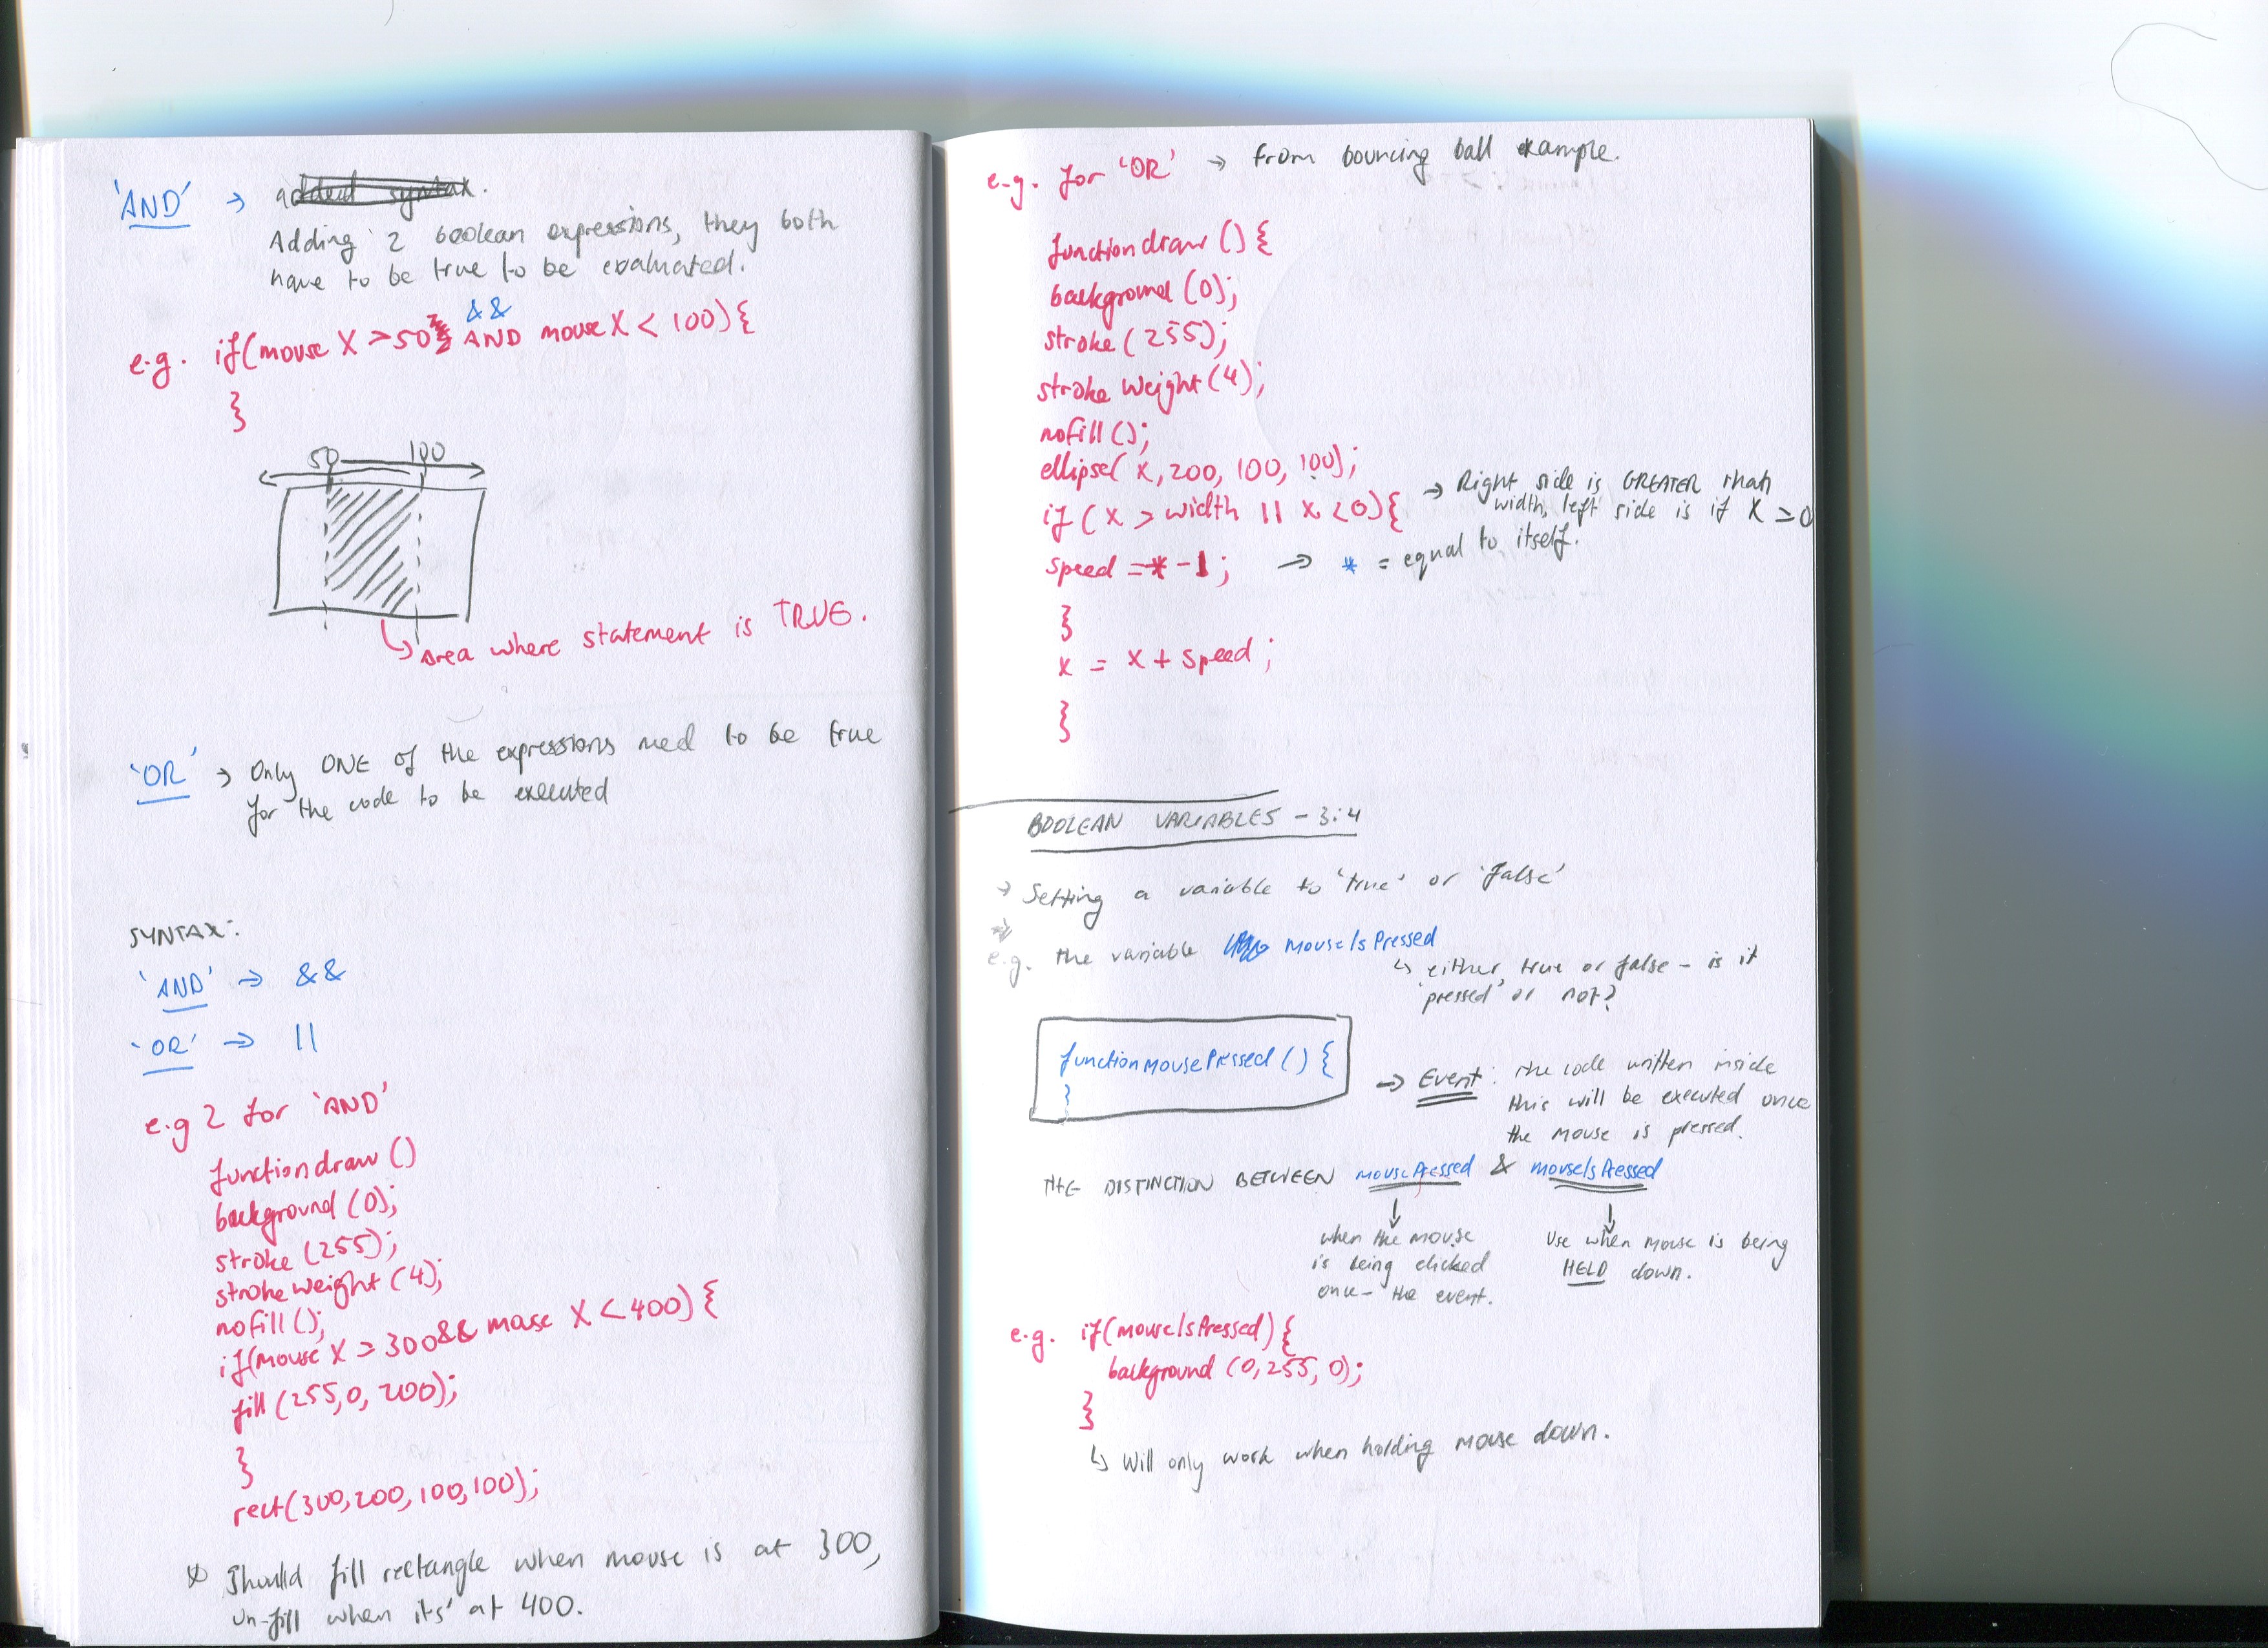 'AND' → added syntax.
Adding 2 boolean expressions, they both
have to be true to be evaluated.
&&
e.g. if(mouse X > 50 AND mouse X < 100){
}
50 100
Area where statement is TRUE.
'OR' → Only ONE of the expressions need to be true
for the code to be executed
SYNTAX:
'AND' → &&
'OR' → ||
e.g 2 for 'AND'
function draw ()
background (0);
stroke (255);
stroke weight (4);
nofill ();
if(mouse X > 300 && mouse X < 400) {
fill (255, 0, 200);
}
rect(300, 200, 100, 100);
Should fill rectangle when mouse is at 300,
un-fill when its' at 400.
e.g. for 'OR' → from bouncing ball example.
function draw () {
background (0);
stroke (255);
stroke weight (4);
nofill ();
ellipse( x, 200, 100, 100);
if ( x > width || x < 0){ → Right side is GREATER than
width, left side is if X ≥ 0
speed = * -1; → * = equal to itself.
}
x = x + speed;
}
BOOLEAN VARIABLES - 3:4
→ Setting a variable to 'true' or 'false'
e.g. the variable mouseIsPressed
↳ either true or false - is it
'pressed' or not?
function mousePressed () {
}
→ Event: the code written inside
this will be executed once
the mouse is pressed.
THE DISTINCTION BETWEEN mousePressed & mouseIsPressed
↓ ↓
when the mouse
is being clicked
once - the event.
Use when mouse is being
HELD down.
e.g. if(mouseIsPressed) {
background (0, 255, 0);
}
↳ Will only work when holding mouse down.